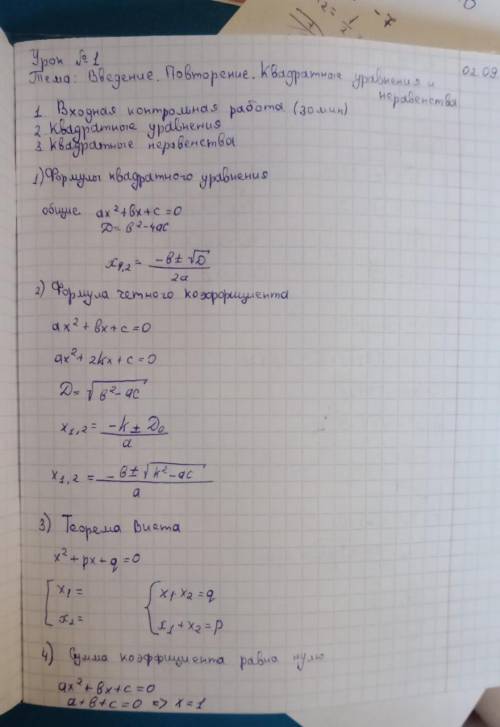 Урок №1
Тема: Введение. Повторение. Квадратные уравнения и неравенства 02.09
1. Входная контрольная работа (30 мин)
2. Квадратные уравнения
3. Квадратные неравенства
1) Формулы квадратного уравнения
общие ax²+вx+c=0
D=в²-4ac
x₁,₂= (-в±√D)/2a
2) Формула четного коэффициента
ax²+вx+c=0
ax²+2kx+c=0
D=√(в²-ac)
x₁,₂= (-k±D₀)/a
x₁,₂= (-в±√(k²-ac))/a
3) Теорема Виета
x²+px+q=0
[x₁= {x₁·x₂=q
[x₂= {x₁+x₂=p
4) Сумма коэффициента равна нулю
ax²+вx+c=0
a+в+c=0 => x=1